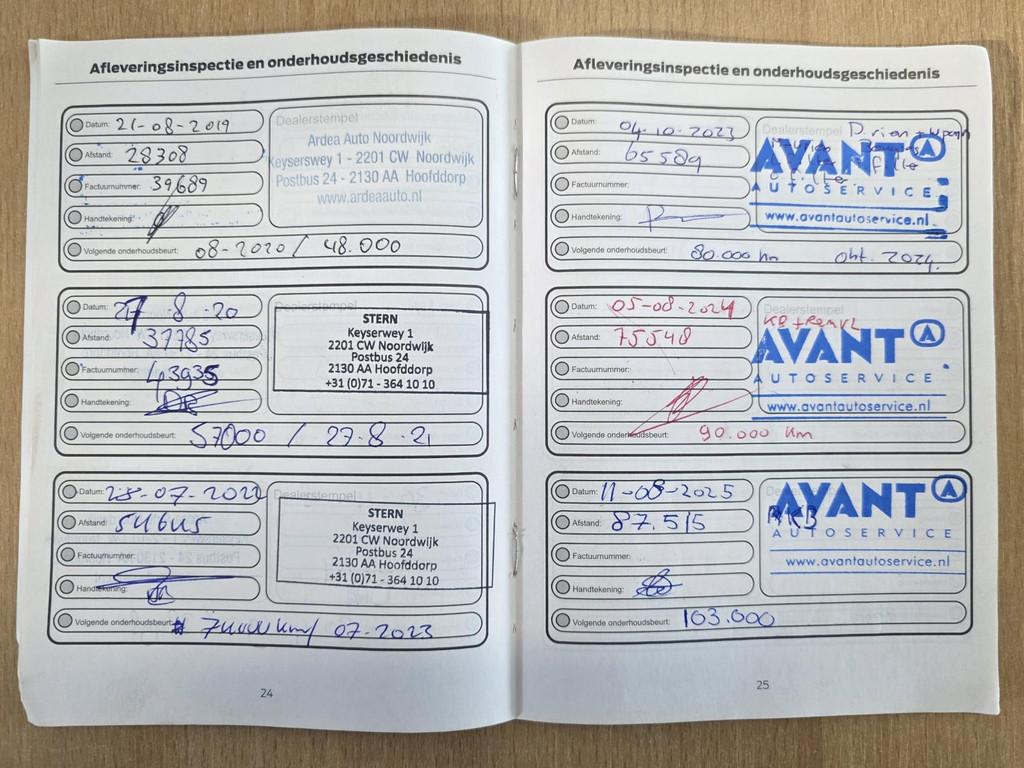 Afleveringsinspectie en onderhoudsgeschiedenis
Datum: 21-08-2019
Afstand: 28308
Factuurnummer: 39,689
Handtekening:
Volgende onderhoudsbeurt: 08-2020 / 48.000
Dealerstempel
Ardea Auto Noordwijk
Keyserswey 1 - 2201 CW Noordwijk
Postbus 24 - 2130 AA Hoofddorp
www.ardeaauto.nl
Datum: 27-8-20
Afstand: 37785
Factuurnummer: 43935
Handtekening:
Volgende onderhoudsbeurt: 57000 / 27-8-21
Dealerstempel
STERN
Keyserwey 1
2201 CW Noordwijk
Postbus 24
2130 AA Hoofddorp
+31 (0)71 - 364 10 10
Datum: 28-07-2022
Afstand: 54645
Factuurnummer:
Handtekening:
Volgende onderhoudsbeurt: 74.000 km/ 07-2023
Dealerstempel
STERN
Keyserwey 1
2201 CW Noordwijk
Postbus 24
2130 AA Hoofddorp
+31 (0)71 - 364 10 10
24
Afleveringsinspectie en onderhoudsgeschiedenis
Datum: 04-10-2023
Afstand: 65589
Factuurnummer:
Handtekening:
Volgende onderhoudsbeurt: 80.000 km Okt. 2024.
Dealerstempel
AVANT A
AUTOSERVICE
www.avantautoservice.nl
Datum: 05-08-2024
Afstand: 75548
Factuurnummer:
Handtekening:
Volgende onderhoudsbeurt: 90.000 km
AVANT A
AUTOSERVICE
www.avantautoservice.nl
Datum: 11-08-2025
Afstand: 87.515
Factuurnummer:
Handtekening:
Volgende onderhoudsbeurt: 103.000
AVANT A
AUTOSERVICE
www.avantautoservice.nl
25